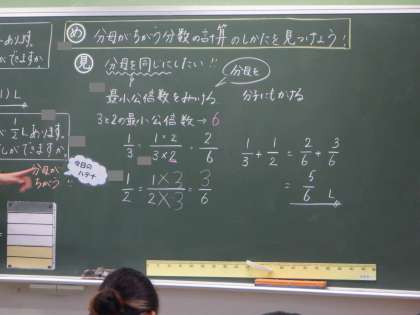 め 分母がちがう分数の計算のしかたを見つけよう!
見 分母を同じにしたい!!
分母を
最小公倍数をみつける
分子にもかける
3と2の最小公倍数→6
1/3 = 1×2/3×2 = 2/6
1/2 = 1×3/2×3 = 3/6
1/3 + 1/2 = 2/6 + 3/6
= 5/6 L
あります。
ができますか。
L
1/2 Lあります。
しができますか。
分母が
ちがう!!
今日の
ハテナ